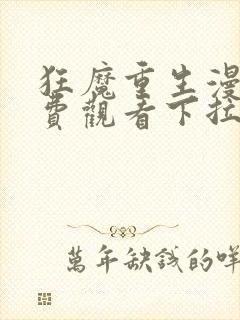 狂魔重生漫
費觀看下拉
萬年缺錢的咩